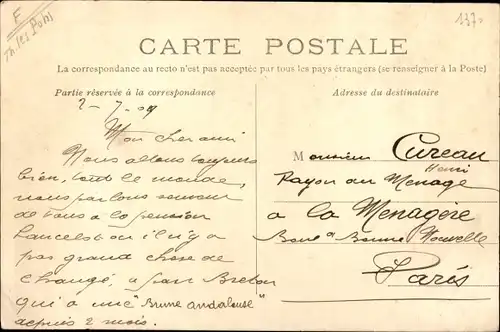 F
Th. les Pains
137.
CARTE POSTALE
La correspondance au recto n'est pas acceptée par tous les pays étrangers (se renseigner à la Poste)
Partie réservée à la correspondance
Adresse du destinataire
2-7.09
Mon cher ami
Nous allons toujours
bien, tout le monde,
nous parlons souvent
de vous a la pension
Lancelot ou il n'y a
pas grand chose de
changé, a part Breton
qui a une "Brune andalouse"
depuis 2 mois.
Monsieur Cureau
Henri
Rayon du Menage
a la Menagère
Boulᵈ Bonne Nouvelle
Paris